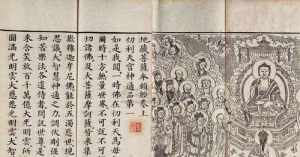 地藏菩薩本願經卷上
忉利天宮神通品第一
如是我聞一時佛在忉利天為母
爾時十方無量世界不可說不可
切諸佛及大菩薩摩訶薩皆來集
歎釋迦牟尼佛能於五濁惡世現
思議大智慧神通之力調伏剛強
知苦樂法各遣侍者問訊世尊是
來含笑放百千萬億大光明雲所
圓滿光明雲大慈悲光明雲大智